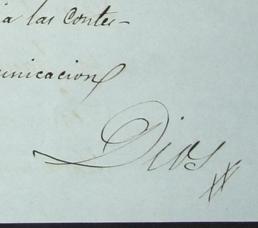 á las contes-
unicacion
Dios